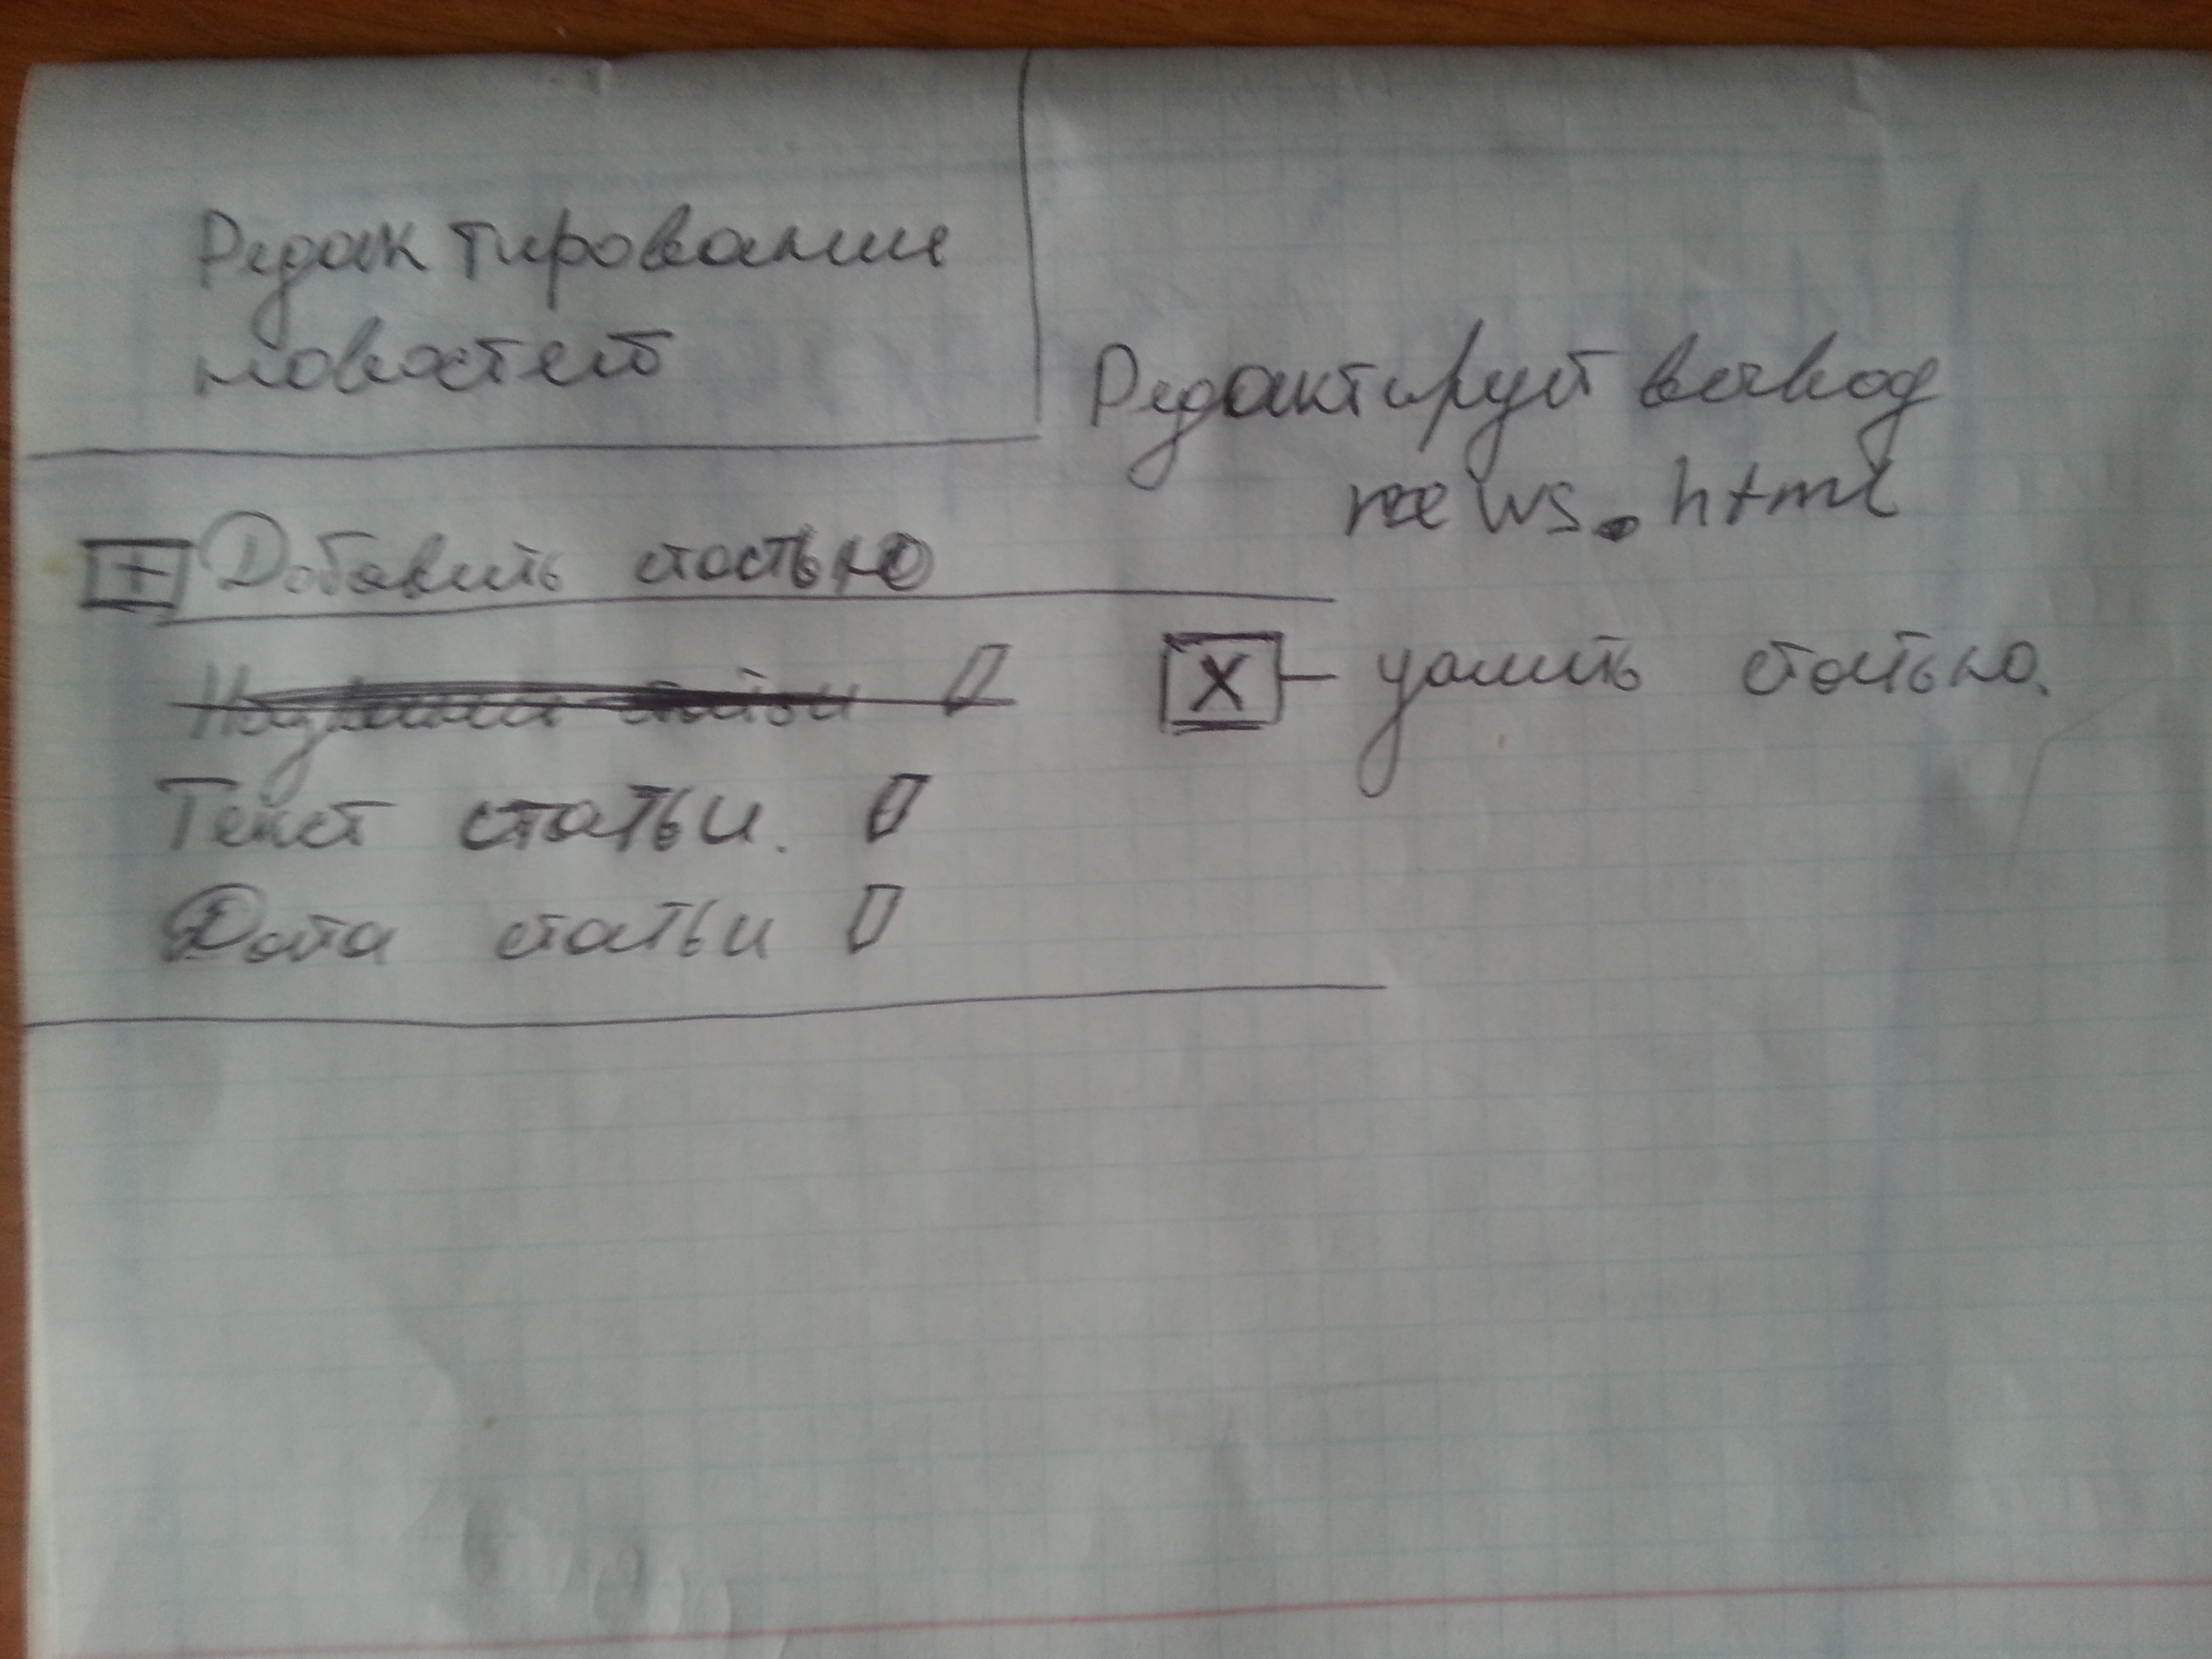 Редактирование
новостей
Редактирует вывод
news.html
+ Добавить статью
Названия статьи
X - уалить статью.
Текст статьи.
Дата статьи